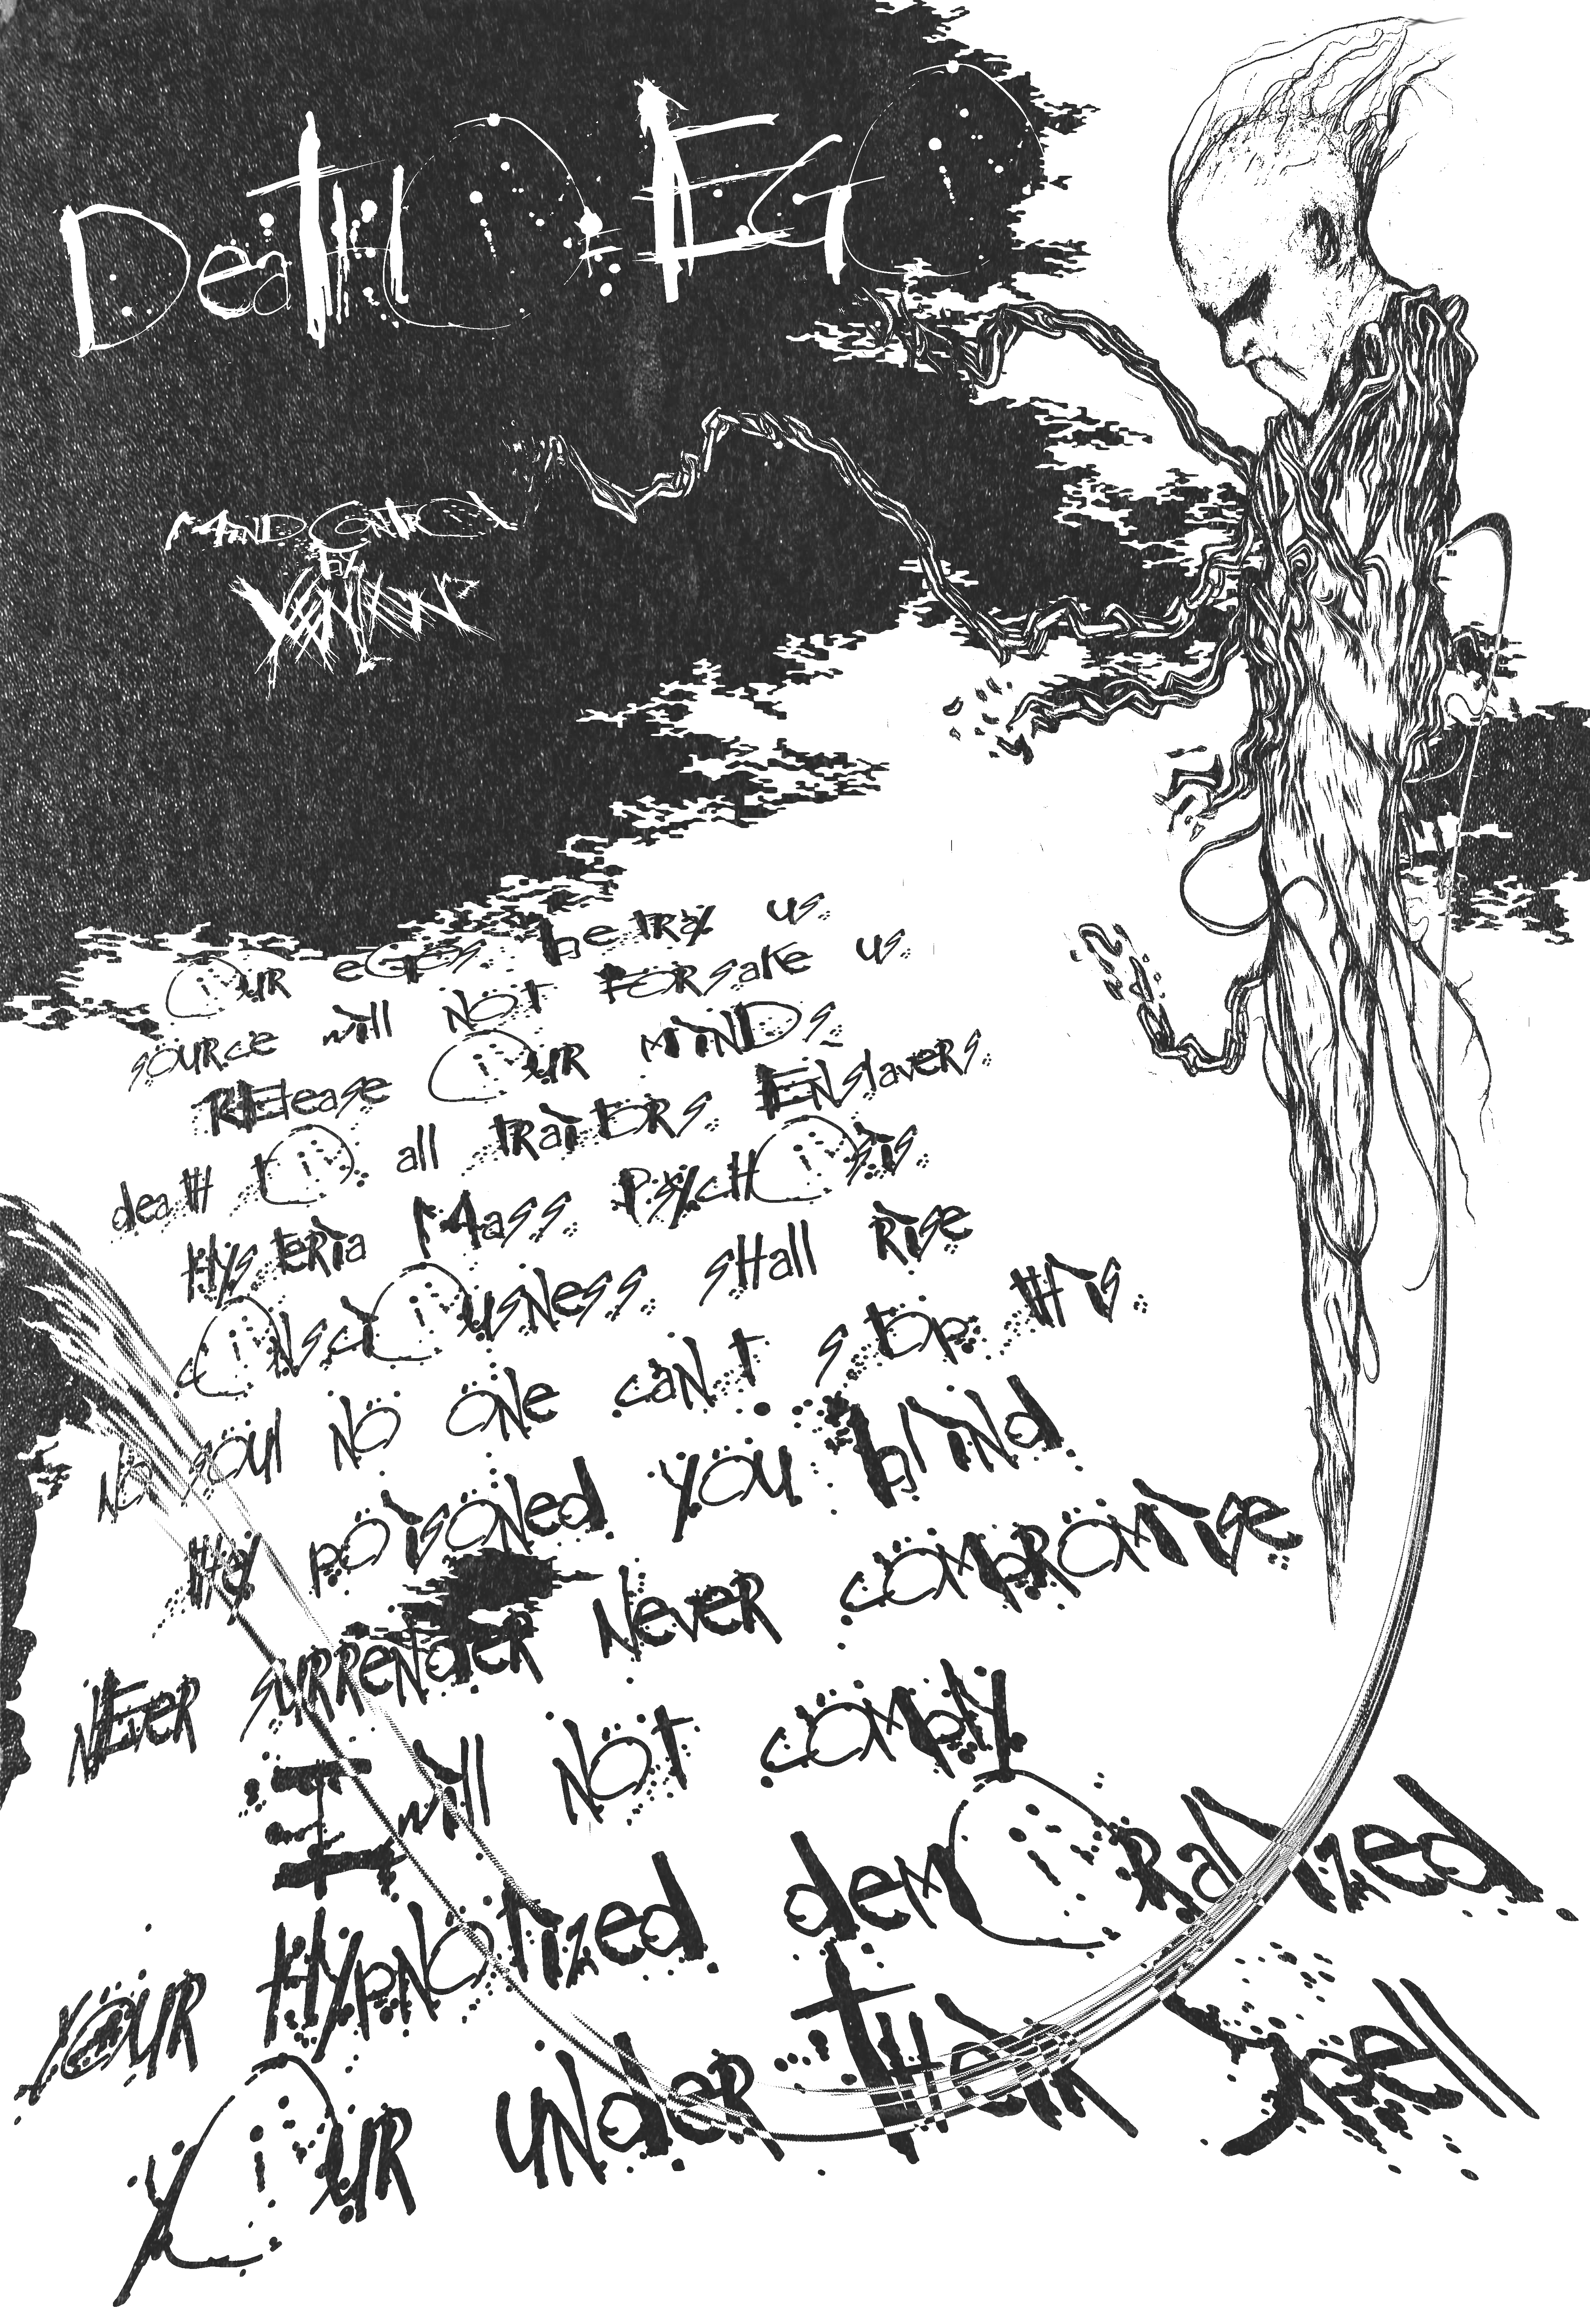 Death OF EGO
MiND CONTROL
BY
XENIAN
OUR eGOs betRAY us.
sOURce will NOT FORsake us.
RElease OUR MiNDs.
death tO all tRaitORs. ENslaveRs.
HYsteRia Mass. PsYcHOsis.
cONsciOUsNess. sHall Rise
NO sOUl NO ONe caN.t stOp tHis.
tHeY pOisONed YOU bliNd.
NEveR suRReNdeR NeveR cOmpROMise
I will NOT cOmplY
YOUR HYpNOtized deMORalized
YOUR uNdeR tHeiR spell